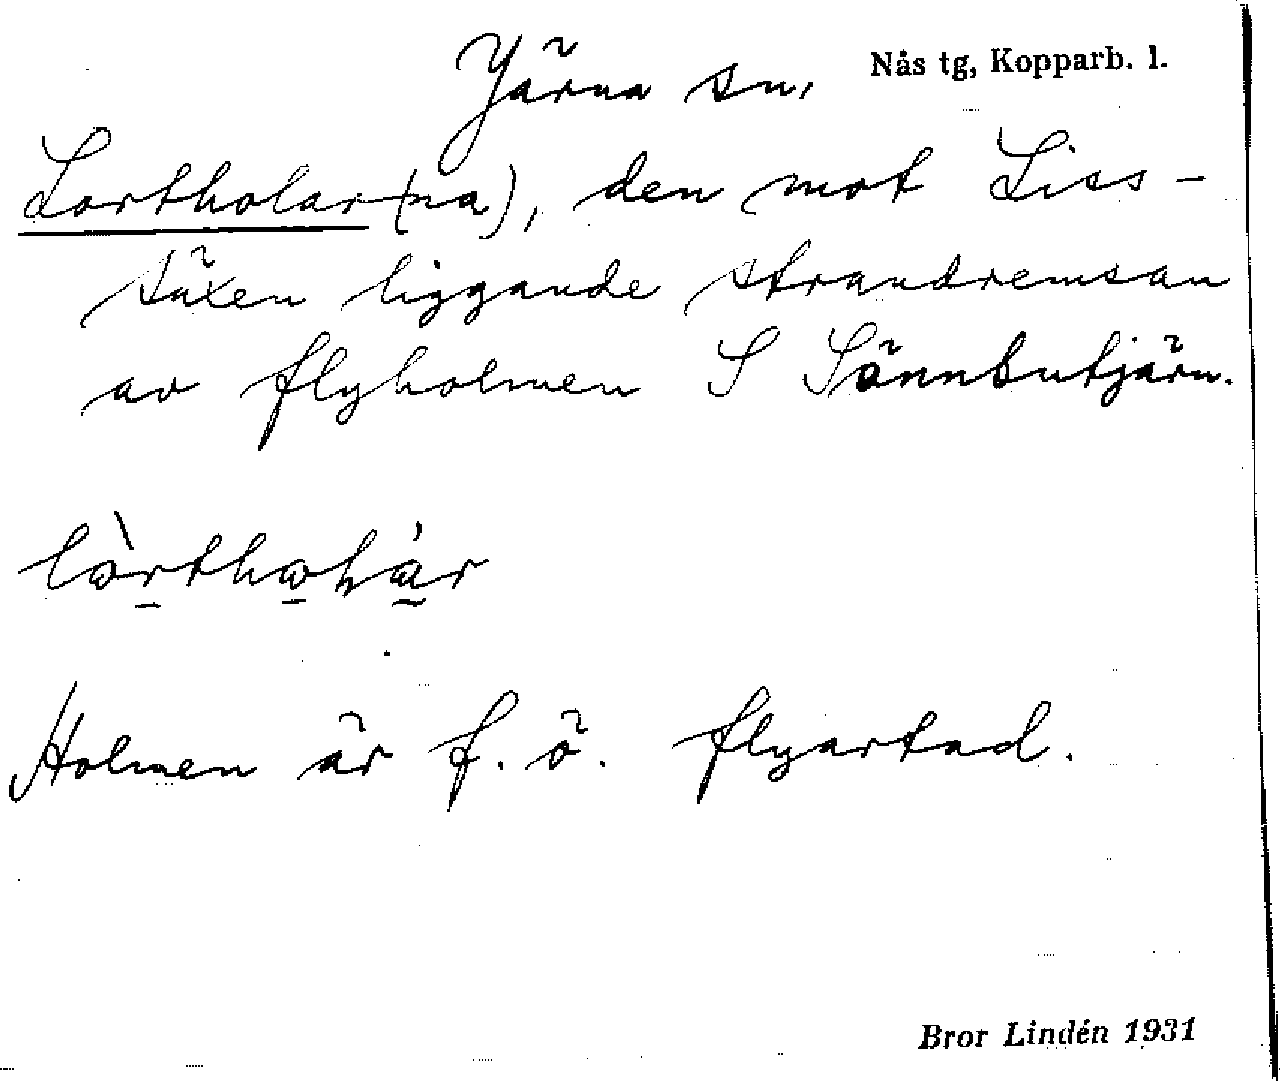 Järna sn, Nås tg, Kopparb. l.
Lortholar(na), den mot Liss-
täxen liggande strandremsan
av flyholmen S Sönnbutjärn.
lòrthoḷàr
Holmen är f. ö. flyartad.
Bror Lindén 1931